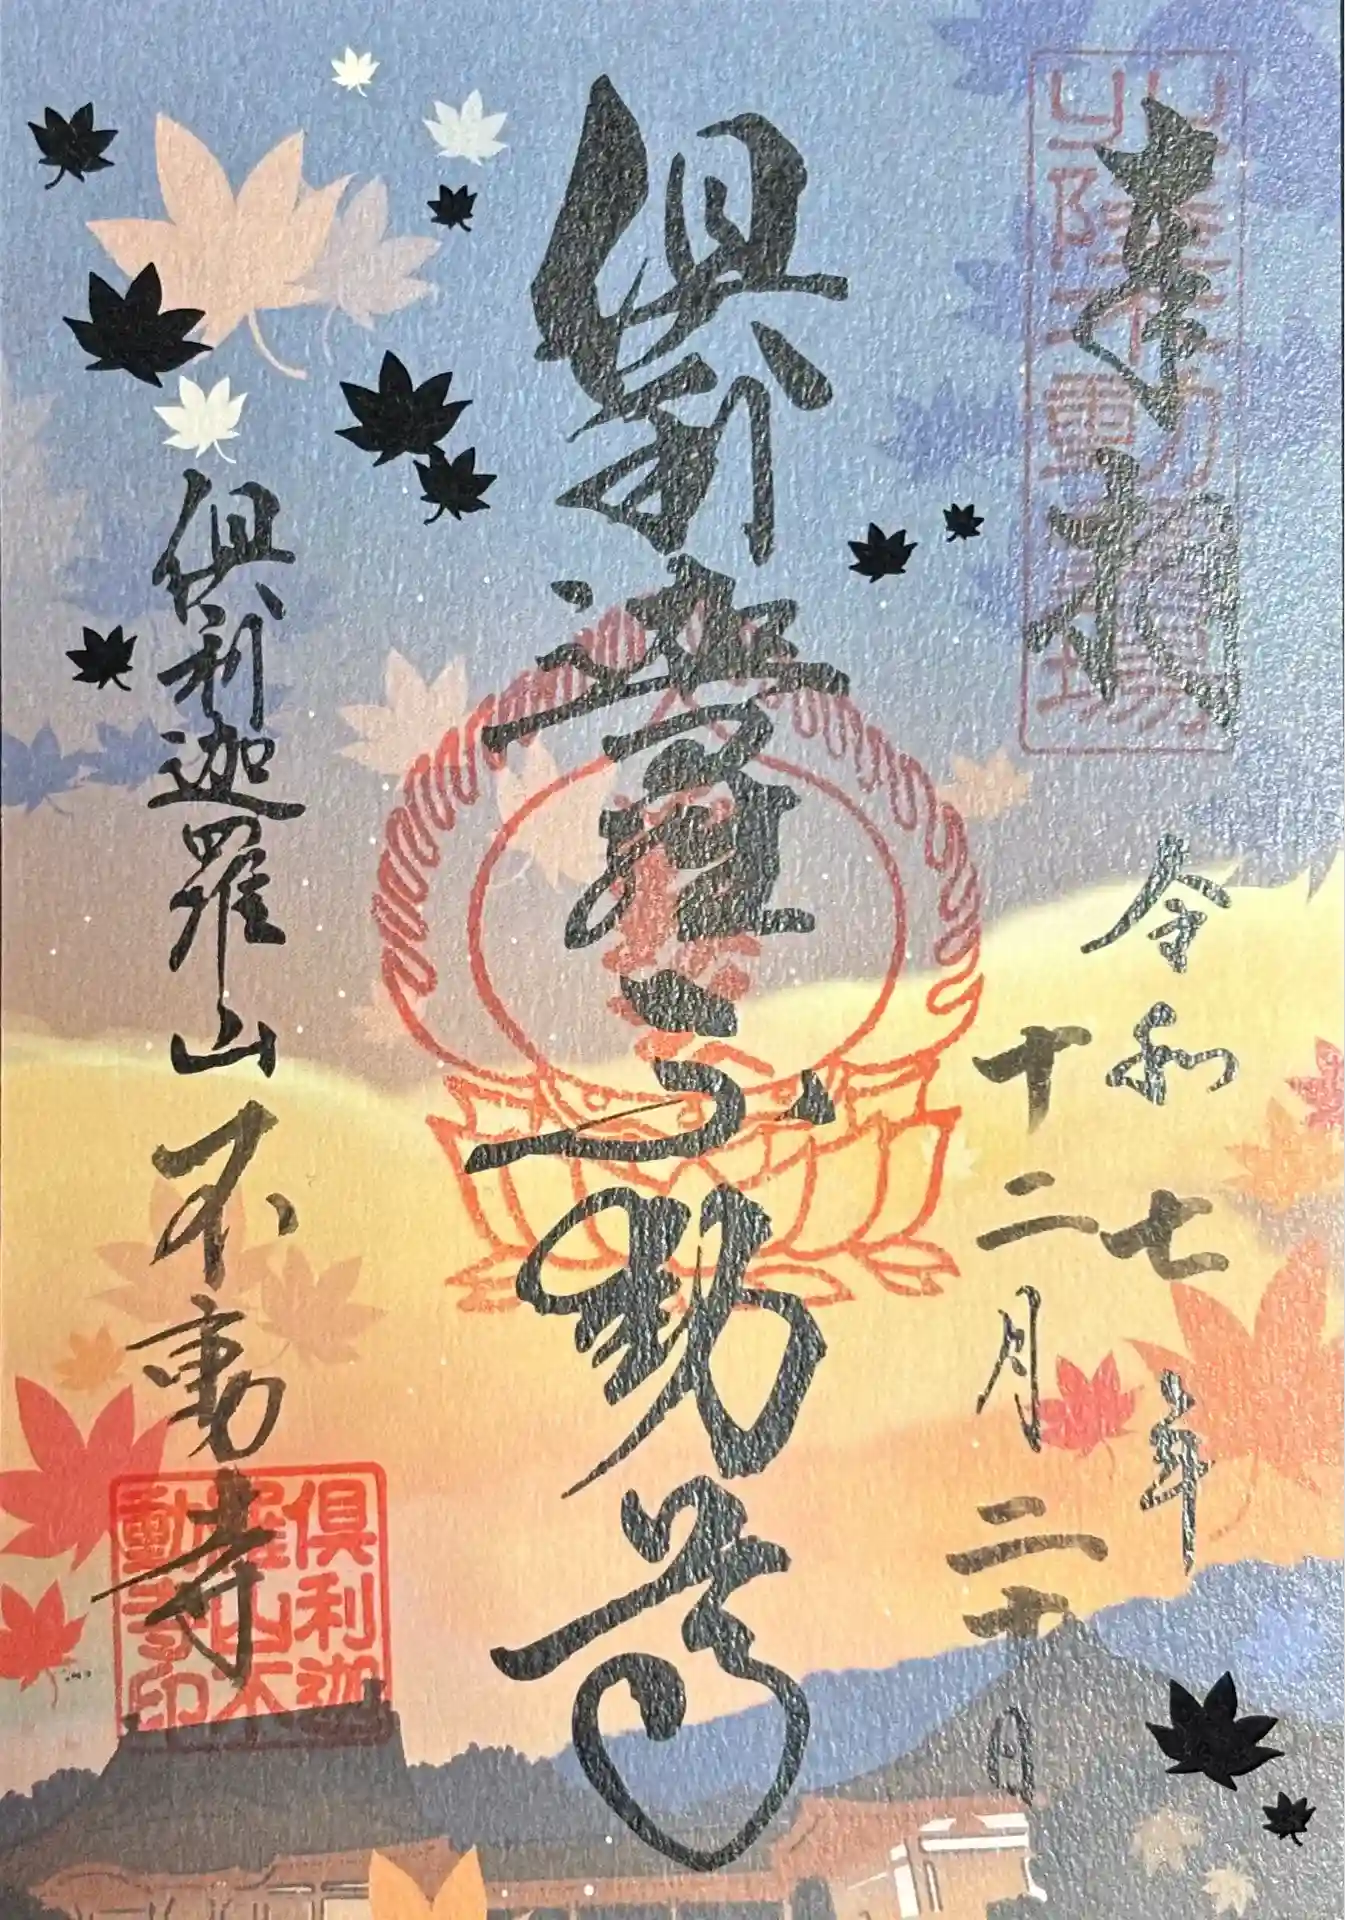 奉拝
北陸不動霊場
令和七年
十二月二十日
倶利迦羅不動尊
倶利迦羅山不動寺
倶利迦
羅山不
動寺印